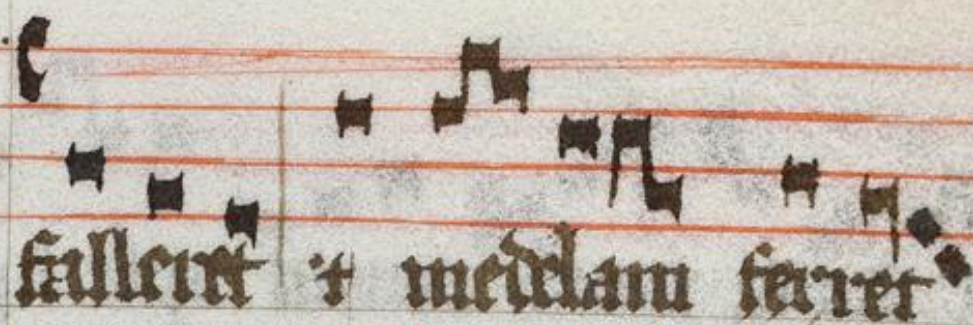 falleret ⁊ medelam ferret